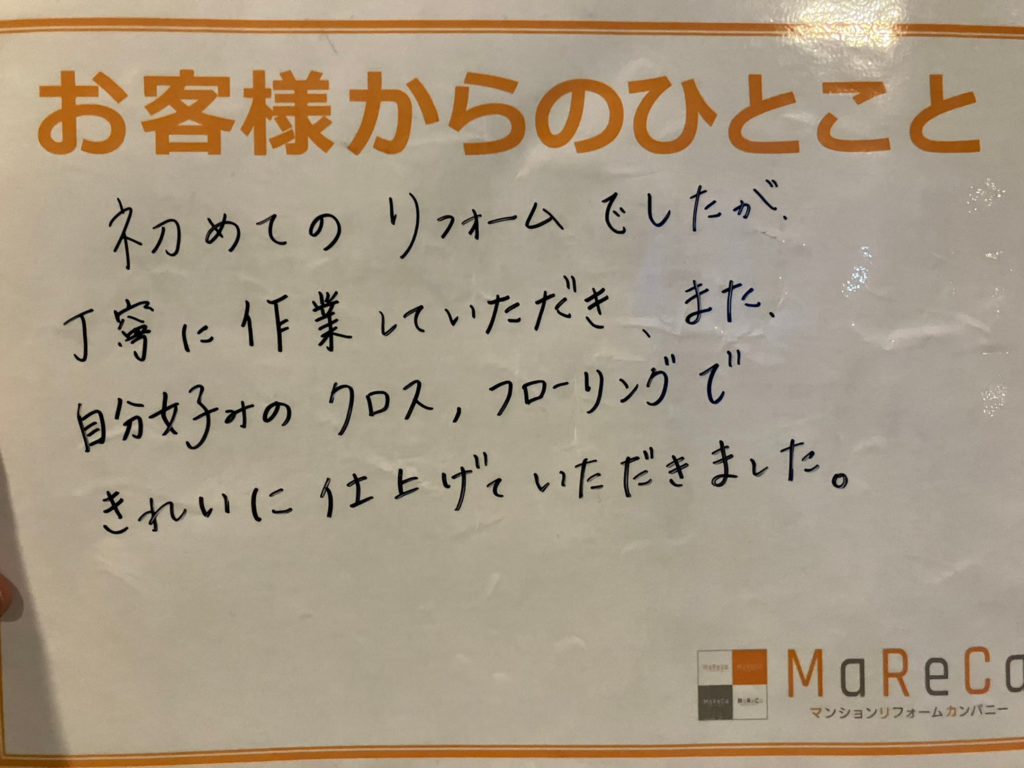 お客様からのひとこと
初めての リフォームでしたが、
丁寧に作業していただき、また、
自分好みの クロス, フローリングで
きれいに 仕上げていただきました。
MaReCa
マンションリフォームカンパニー